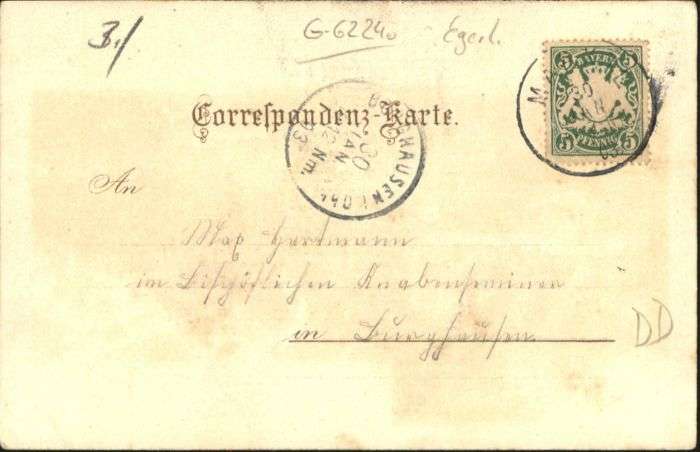 3./
G-6224o
Egerl.
BAYERN
5 5
5 PFENNIG 5
Correspondenz-Karte.
BURGHAUSEN
JAN
00
12 Nm.
An
Max Hartmann
im Bischöflichen Knabenseminar
in Burghausen.
DD